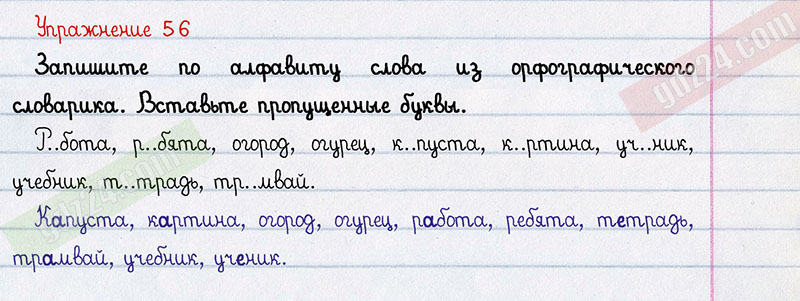 Упражнение 56
Запишите по алфавиту слова из орфографического
словарика. Вставьте пропущенные буквы.
Р..бота, р..бята, огород, огурец, к..пуста, к..ртина, уч..ник,
учебник, т..традь, тр..мвай.
Капуста, картина, огород, огурец, работа, ребята, тетрадь,
трамвай, учебник, ученик.
gdz24.com
gdz24.com